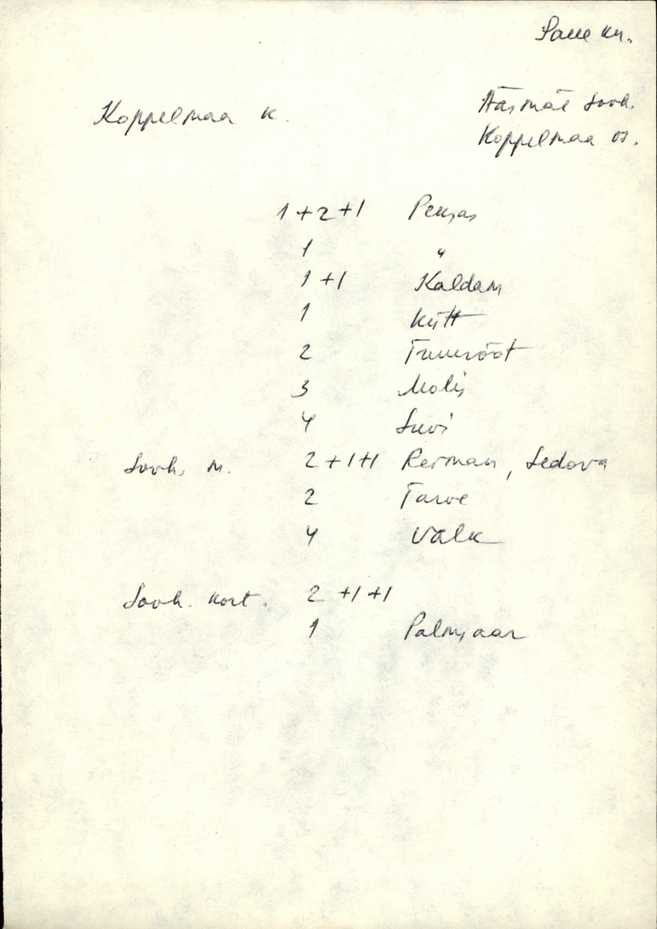 Saue kn.
Ääsmäe sovh.
Koppelmaa k. Koppelmaa os.
1+2+1 Peksas
1 "
1+1 Kaldam
1 Kütt
2
3 Molis
4 Suvi
Sovh. m. 2+1+1 Reiman, Sedova
2 Tarve
4 Valk
Sovh. kort. 2+1+1
1 Palmsaar